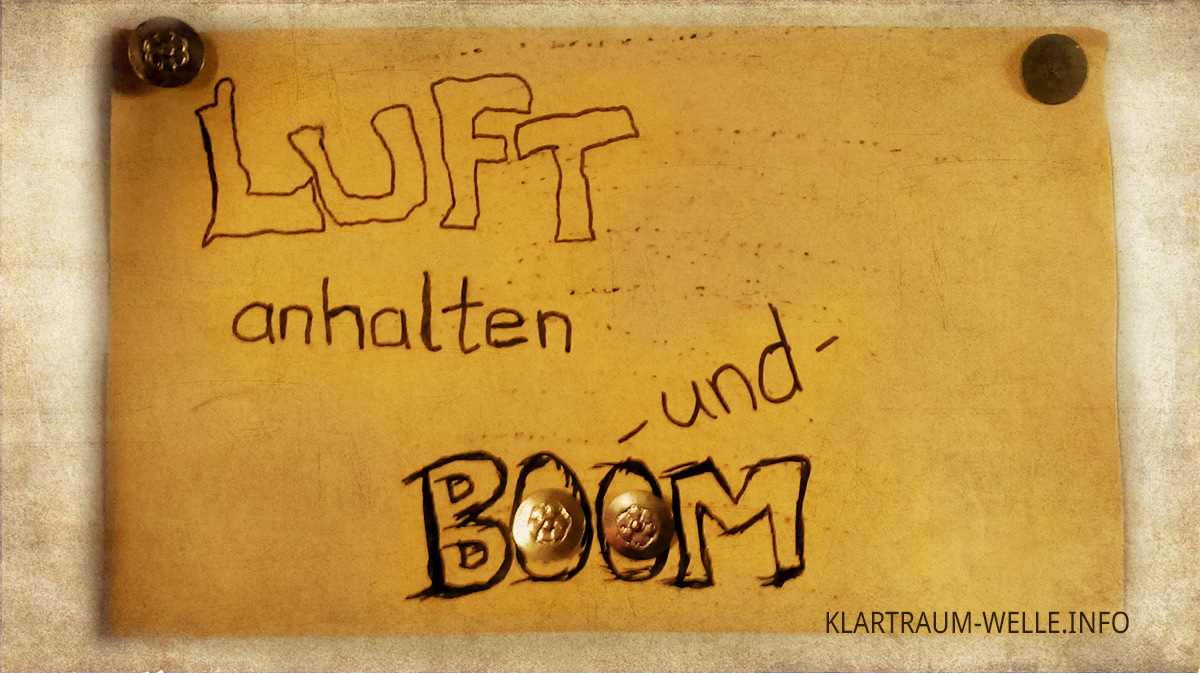 LUFT
anhalten
- und -
BOOM
KLARTRAUM-WELLE.INFO